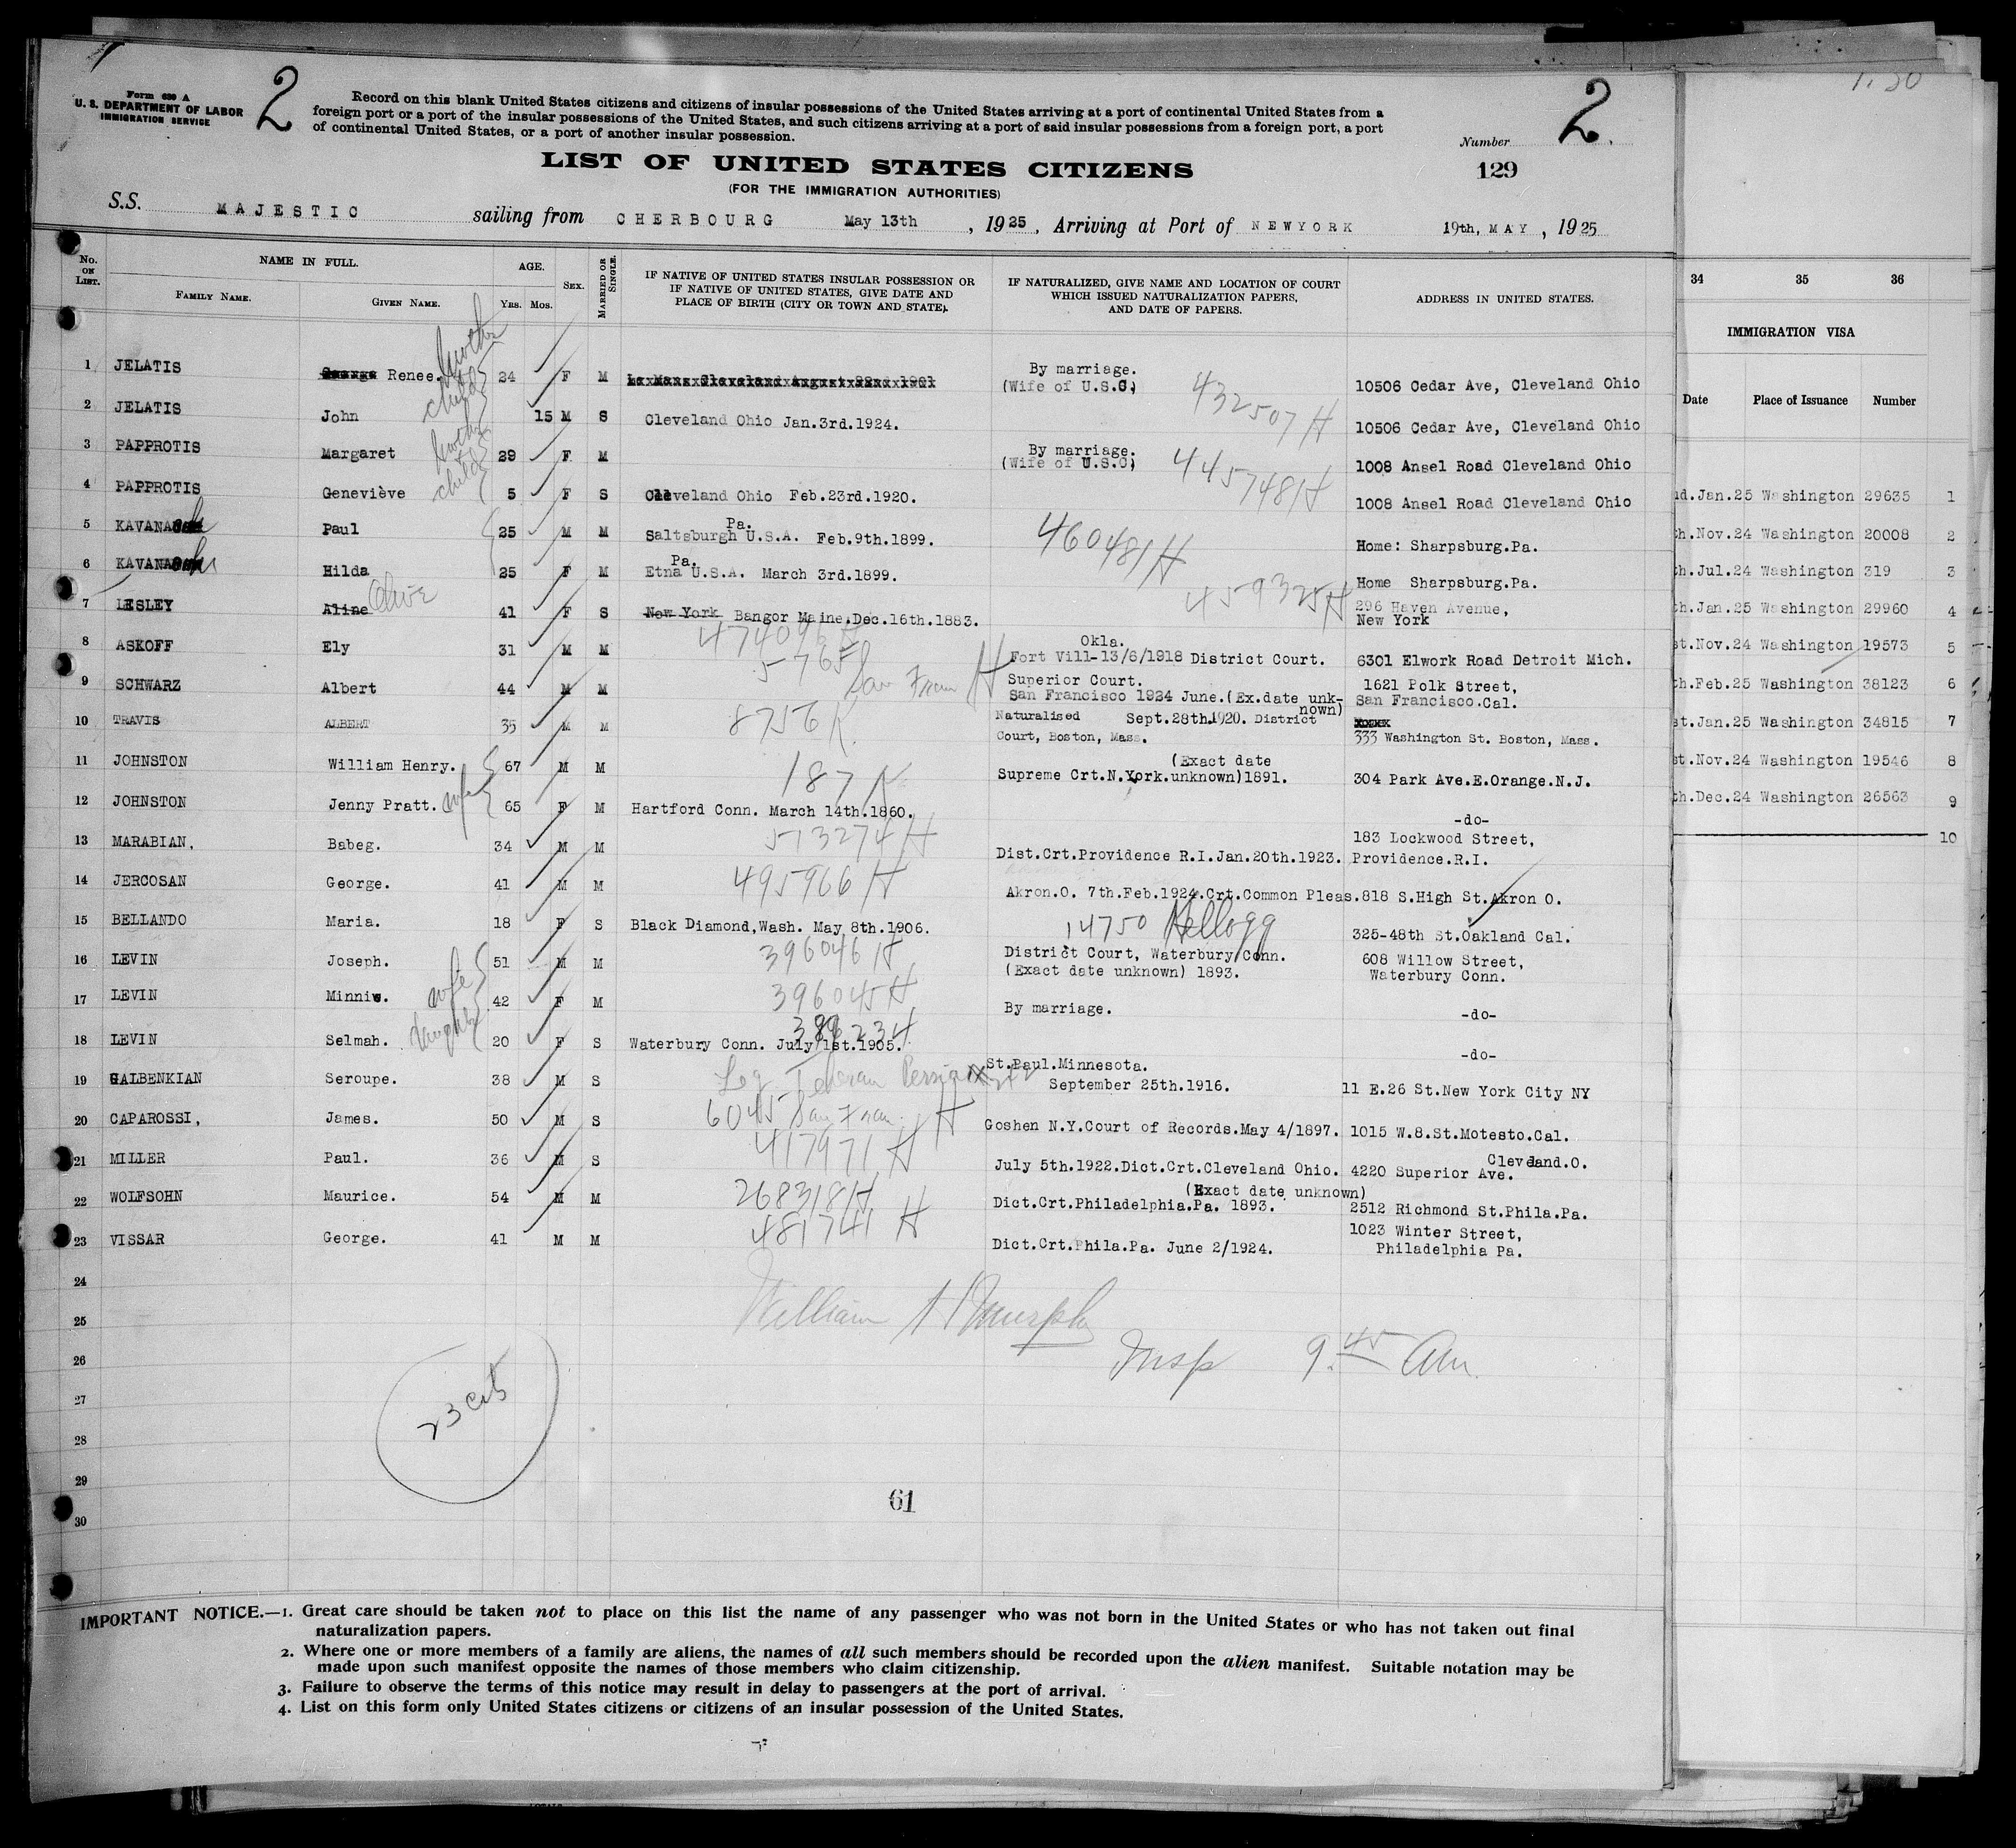 Form 630 A
U. S. DEPARTMENT OF LABOR
IMMIGRATION SERVICE
2
Record on this blank United States citizens and citizens of insular possessions of the United States arriving at a port of continental United States from a
foreign port or a port of the insular possessions of the United States, and such citizens arriving at a port of said insular possessions from a foreign port, a port
of continental United States, or a port of another insular possession.
Number 2.
129
LIST OF UNITED STATES CITIZENS
(FOR THE IMMIGRATION AUTHORITIES)
S.S. MAJESTIC sailing from CHERBOURG May 13th, 1925, Arriving at Port of NEWYORK 19th, MAY, 1925
No. on List. NAME IN FULL. Family Name. Given Name. AGE. Yrs. Mos. Sex. Married or Single.
IF NATIVE OF UNITED STATES INSULAR POSSESSION OR
IF NATIVE OF UNITED STATES, GIVE DATE AND
PLACE OF BIRTH (CITY OR TOWN AND STATE).
IF NATURALIZED, GIVE NAME AND LOCATION OF COURT
WHICH ISSUED NATURALIZATION PAPERS,
AND DATE OF PAPERS.
ADDRESS IN UNITED STATES.
1 JELATIS Renee. mother 24 F M Le Mans Cleveland August 22nd 1901 By marriage. (Wife of U.S.C) 10506 Cedar Ave, Cleveland Ohio
432507 H
2 JELATIS John child 15 M S Cleveland Ohio Jan.3rd.1924. 10506 Cedar Ave, Cleveland Ohio
3 PAPPROTIS Margaret mother 29 F M By marriage. (Wife of U.S.C) 1008 Ansel Road Cleveland Ohio
445748 H
4 PAPPROTIS Geneviève child 5 F S Cleveland Ohio Feb.23rd.1920. 1008 Ansel Road Cleveland Ohio
5 KAVANA Paul 25 M M Saltsburgh Pa. U.S.A. Feb.9th.1899. 460481 H Home: Sharpsburg.Pa.
6 KAVANA Hilda 25 F M Etna Pa. U.S.A. March 3rd.1899. Home Sharpsburg.Pa.
7 LESLEY Aline Olive 41 F S New York Bangor Maine.Dec.16th.1883. 459325 H 296 Haven Avenue,
New York
8 ASKOFF Ely 31 M M 474096 H Okla.
Fort Vill-13/6/1918 District Court. 6301 Elwork Road Detroit Mich.
9 SCHWARZ Albert 44 M M 5765 San Fran H Superior Court.
San Francisco 1924 June.(Ex.date unk-
nown) 1621 Polk Street,
San Francisco.Cal.
10 TRAVIS ALBERT 35 M M 8756 K. Naturalised Sept.28th.1920. District
Court, Boston, Mass. 333 Washington St. Boston, Mass.
11 JOHNSTON William Henry. 67 M M 187 K (Exact date
Supreme Crt.N.York.unknown)1891. 304 Park Ave.E.Orange.N.J.
12 JOHNSTON Jenny Pratt. wife 65 F M Hartford Conn. March 14th.1860. -do-
13 MARABIAN, Babeg. 34 M M 513274 H Dist.Crt.Providence R.I.Jan.20th.1923. 183 Lockwood Street,
Providence.R.I.
14 JERCOSAN George. 41 M M 495966 H Akron.O. 7th.Feb.1924.Crt.Common Pleas. 818 S.High St.Akron O.
15 BELLANDO Maria. 18 F S Black Diamond,Wash. May 8th.1906. 14750 Kellogg 325-48th St.Oakland Cal.
16 LEVIN Joseph. 51 M M 396046 H District Court, Waterbury Conn.
(Exact date unknown) 1893. 608 Willow Street,
Waterbury Conn.
17 LEVIN Minnie. wife 42 F M 396045 H By marriage. -do-
18 LEVIN Selmah. daughter 20 F S Waterbury Conn. July 1st.1905. -do-
19 GALBENKIAN Seroupe. 38 M S Leg Teheran Persia St.Paul.Minnesota.
September 25th.1916. 11 E.26 St.New York City NY
20 CAPAROSSI, James. 50 M S 6045 San Fran. H Goshen N.Y.Court of Records.May 4/1897. 1015 W.8.St.Motesto.Cal.
21 MILLER Paul. 36 M S 417971 H July 5th.1922.Dict.Crt.Cleveland Ohio. 4220 Superior Ave. Cleveland.O.
22 WOLFSOHN Maurice. 54 M M 268318 H (Exact date unknown)
Dict.Crt.Philadelphia.Pa. 1893. 2512 Richmond St.Phila.Pa.
23 VISSAR George. 41 M M 481741 H Dict.Crt.Phila.Pa. June 2/1924. 1023 Winter Street,
Philadelphia Pa.
24
25
William H Murphy
26
Insp 9.45 Am.
27
23 cits
28
29
61
30
IMPORTANT NOTICE.—1. Great care should be taken not to place on this list the name of any passenger who was not born in the United States or who has not taken out final
naturalization papers.
2. Where one or more members of a family are aliens, the names of all such members should be recorded upon the alien manifest. Suitable notation may be
made upon such manifest opposite the names of those members who claim citizenship.
3. Failure to observe the terms of this notice may result in delay to passengers at the port of arrival.
4. List on this form only United States citizens or citizens of an insular possession of the United States.
34 35 36
IMMIGRATION VISA
Date Place of Issuance Number
d.Jan.25 Washington 29635 1
h.Nov.24 Washington 20008 2
h.Jul.24 Washington 319 3
h.Jan.25 Washington 29960 4
t.Nov.24 Washington 19573 5
h.Feb.25 Washington 38123 6
t.Jan.25 Washington 34815 7
t.Nov.24 Washington 19546 8
h.Dec.24 Washington 26563 9
10